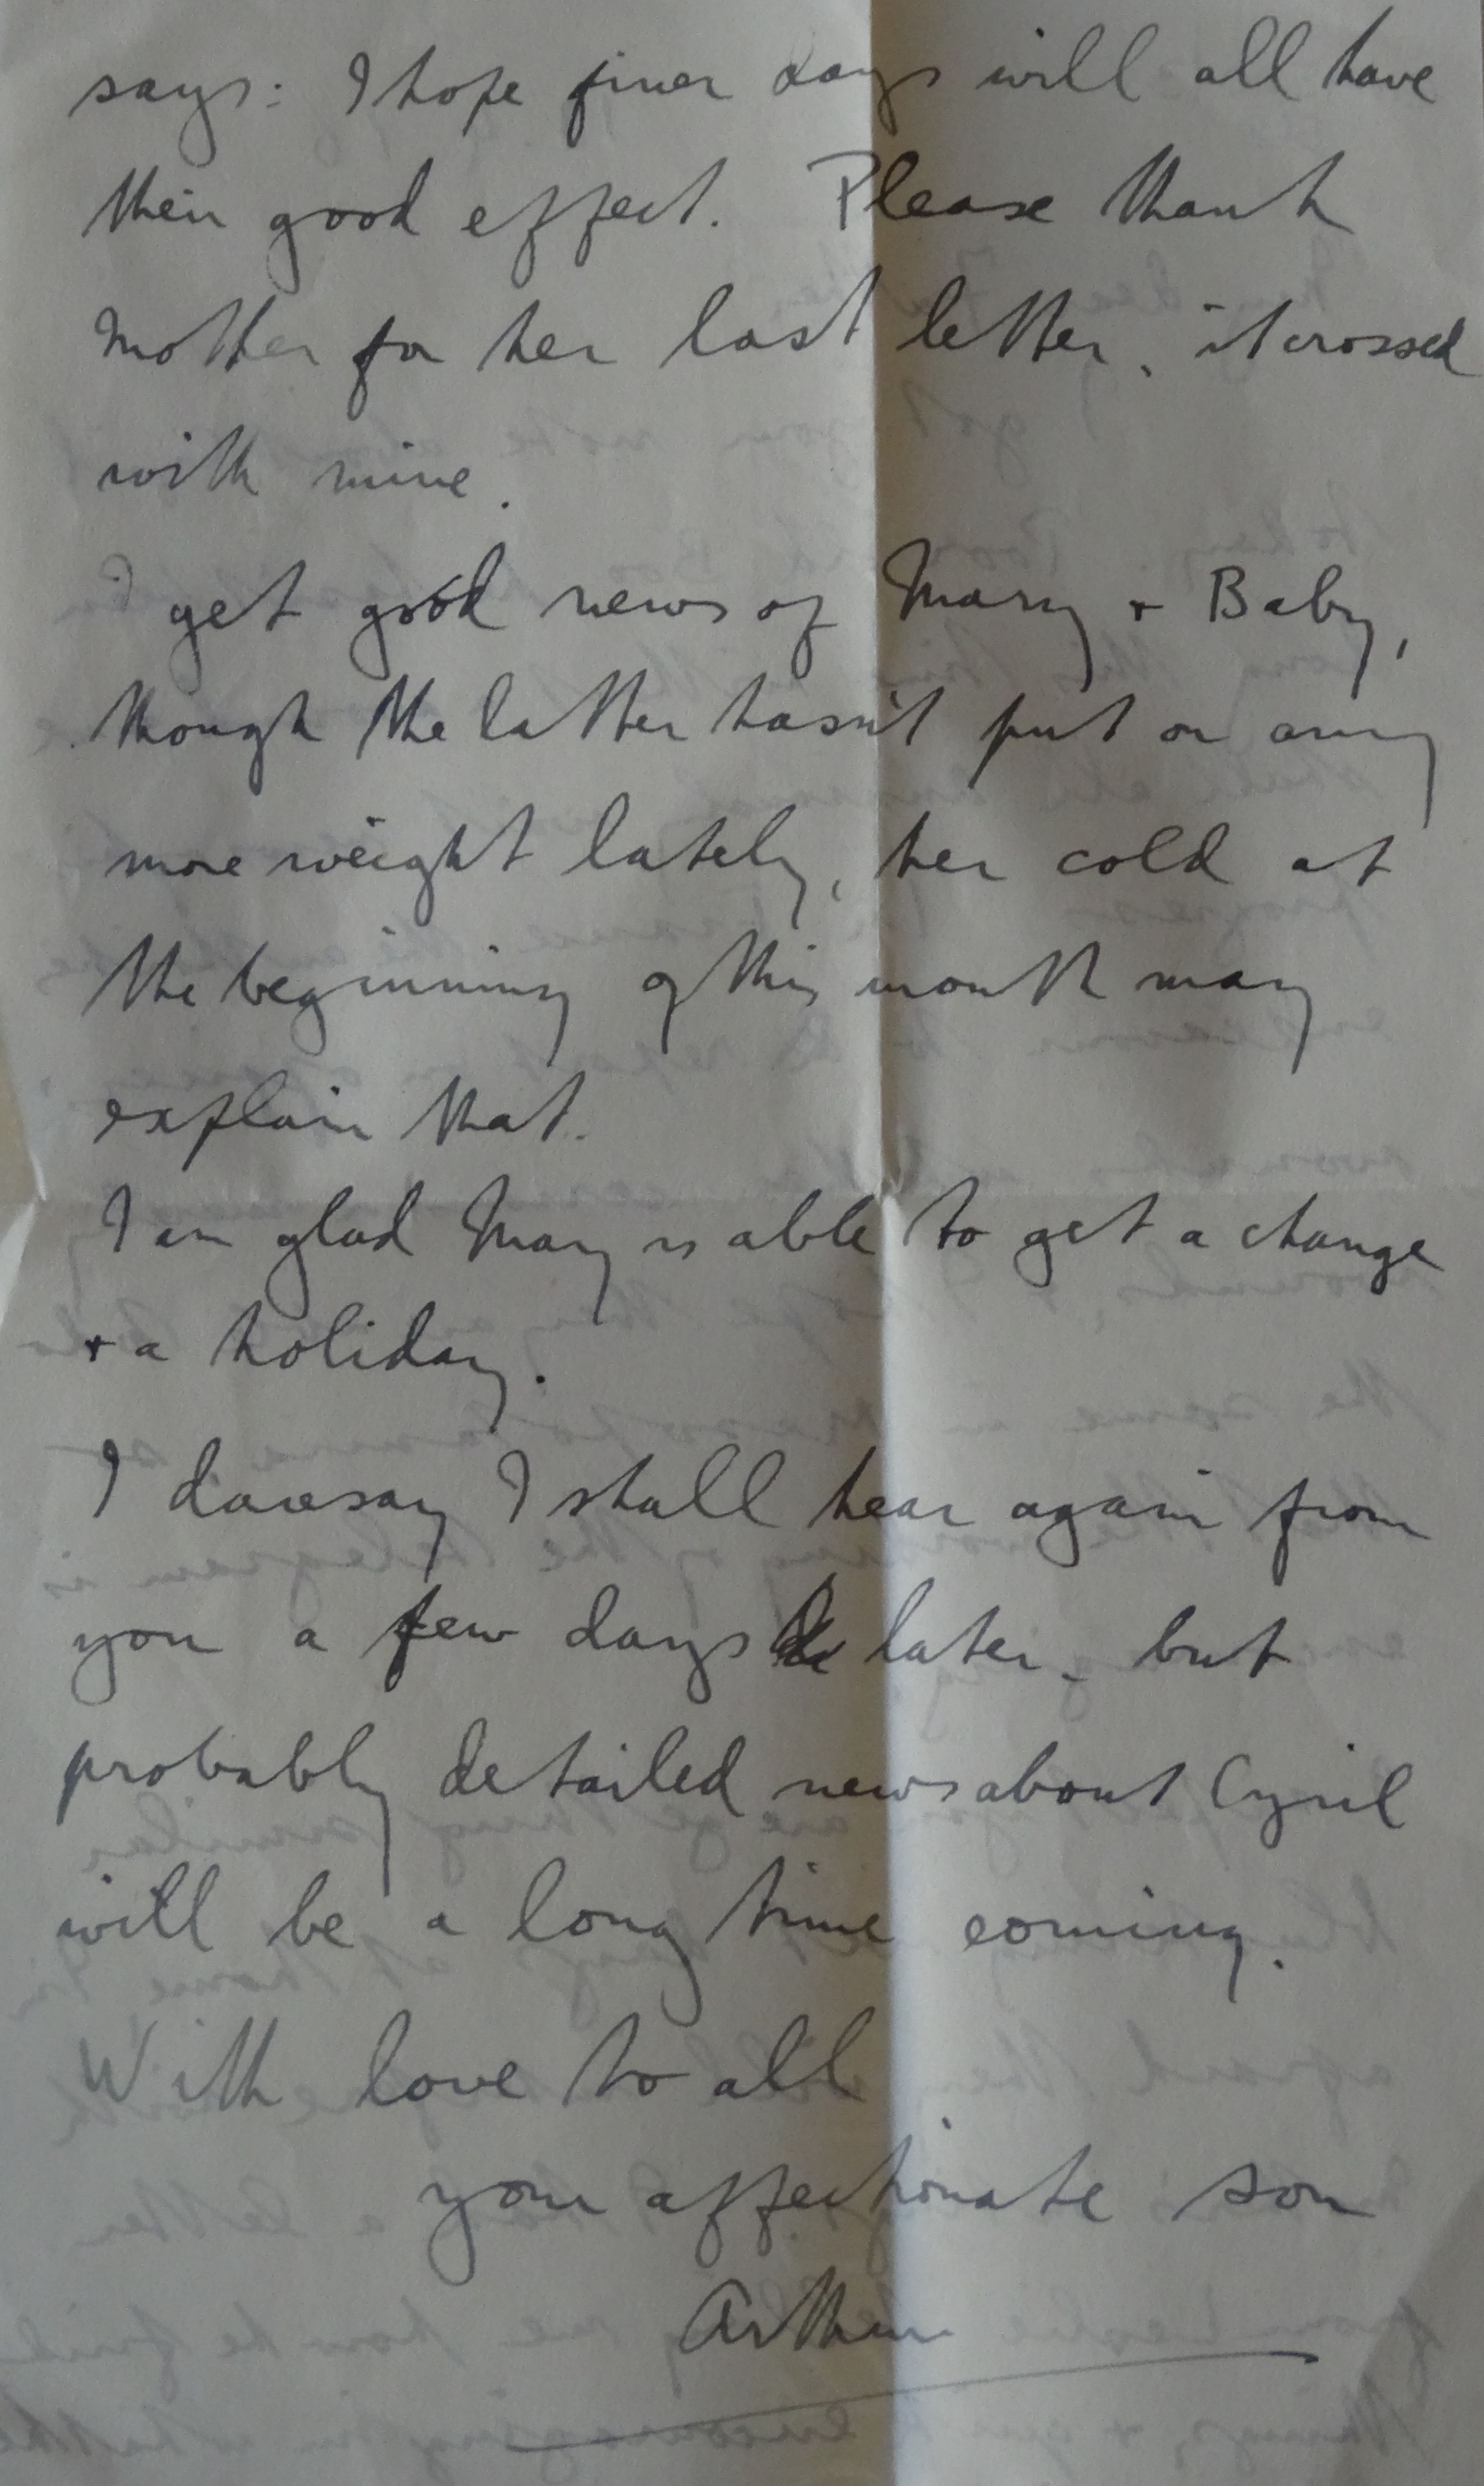 says: I hope finer days will all have
their good effect. Please thank
Mother for her last letter, it crossed
with mine.
I get good news of Mary + Baby,
though the latter hasn't put on any
more weight lately, her cold at
the beginning of this month may
explain that.
I am glad May is able to get a change
+ a holiday.
I daresay I shall hear again from
you a few days later - but
probably detailed news about Cyril
will be a long time coming.
With love to all
your affectionate son
Arthur